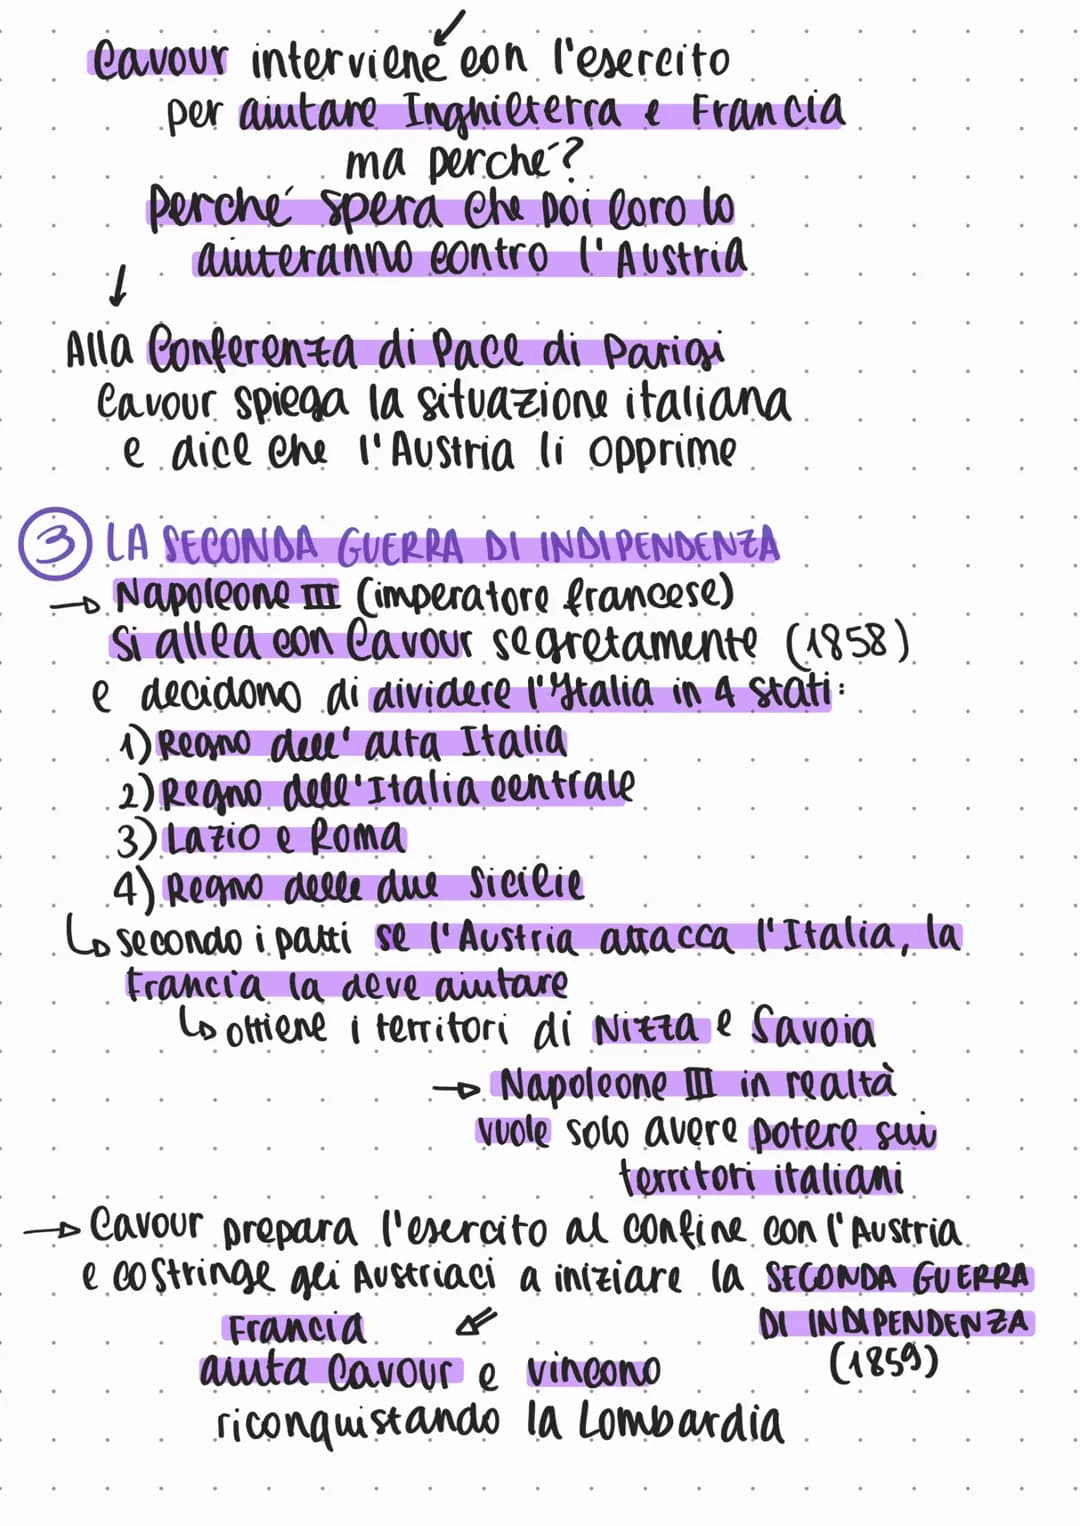 Cavour interviene con l'esercito
per aiutare Inghilterra e Francia
ma perché?
Perché spera che poi loro lo
aiuteranno contro l'Austria
↓
Alla Conferenza di Pace di Parigi
Cavour spiega la situazione italiana
e dice che l'Austria li opprime
③ LA SECONDA GUERRA DI INDIPENDENZA
→ Napoleone III (imperatore francese)
si allea con Cavour segretamente (1858)
e decidono di dividere l'Italia in 4 stati:
1) Regno dell'alta Italia
2) Regno dell'Italia centrale
3) Lazio e Roma
4) Regno delle due Sicilie
↳ secondo i patti se l'Austria attacca l'Italia, la
Francia la deve aiutare
↳ ottiene i territori di Nizza e Savoia
→ Napoleone III in realtà
vuole solo avere potere sui
territori italiani
→ Cavour prepara l'esercito al confine con l'Austria
e costringe gli Austriaci a iniziare la SECONDA GUERRA
DI INDIPENDENZA
(1859)
Francia
aiuta Cavour e vincono
riconquistando la Lombardia